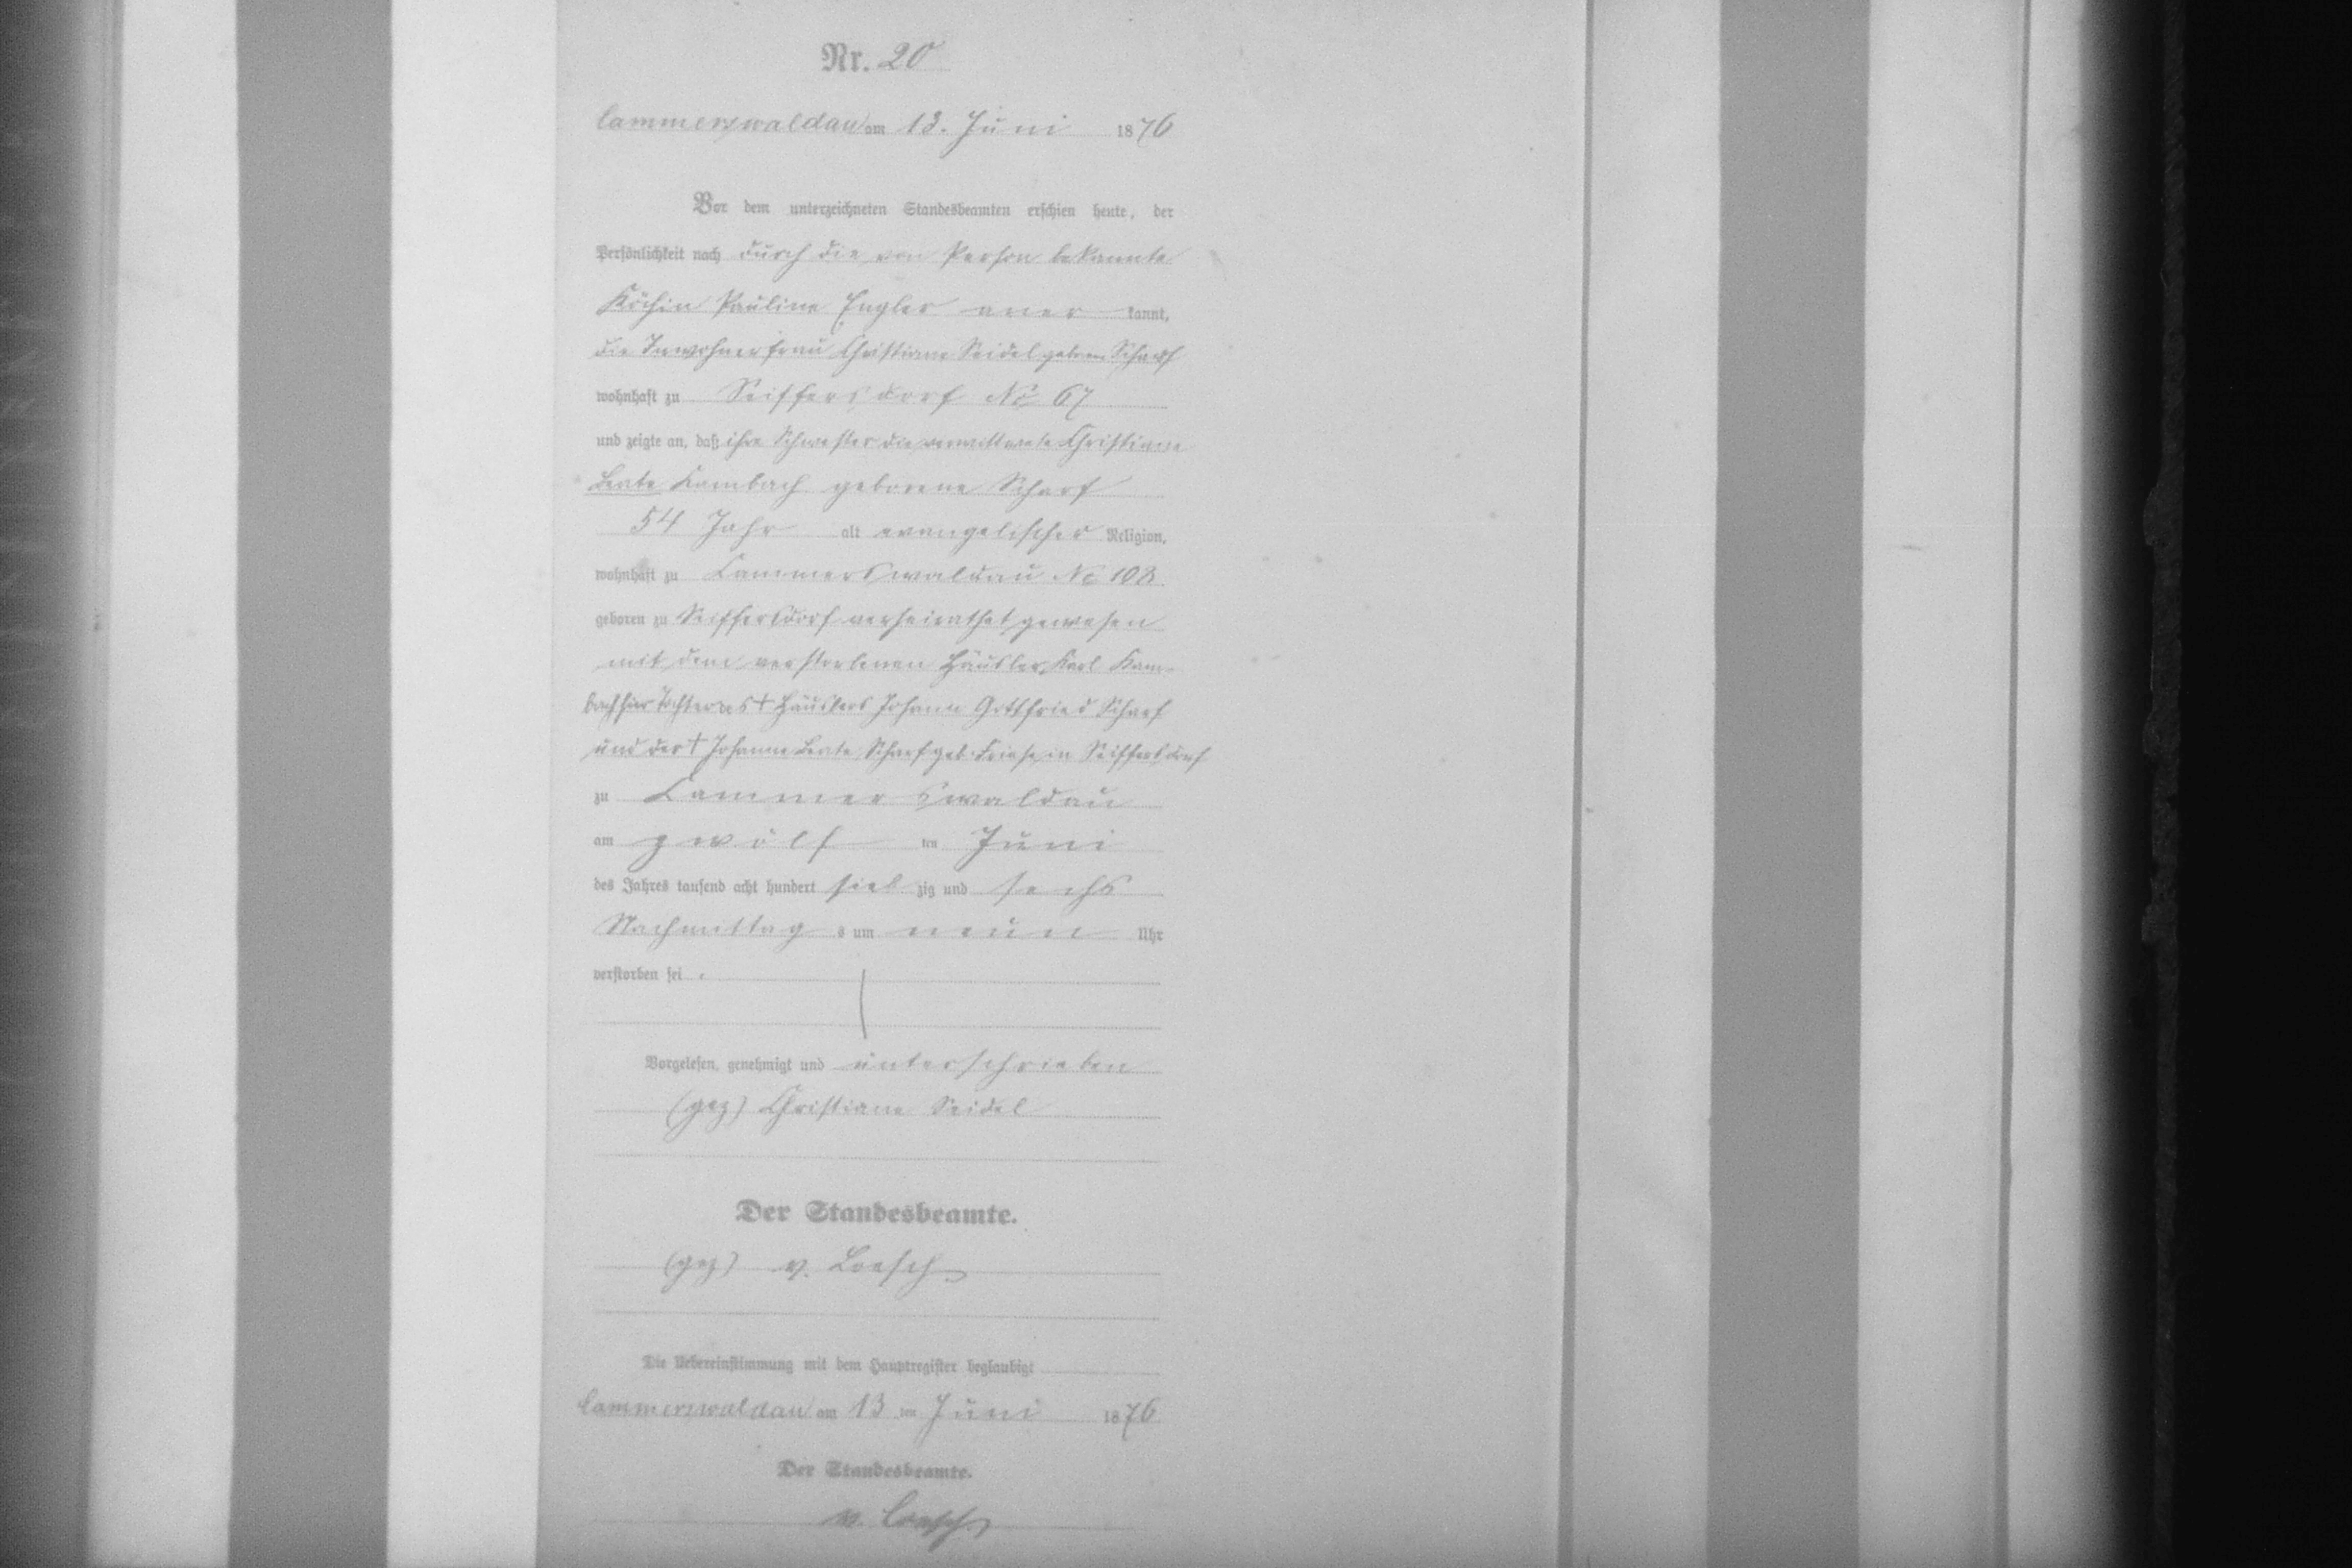 Nr. 20
Cammerswaldau am 13. Juni 1876
Vor dem unterzeichneten Standesbeamten erschien heute, der
Persönlichkeit nach durch die von Person bekannte
Köchin Pauline Engler aner kannt,
die Inwohnerfrau Christiane Seidel geborne Scharf
wohnhaft zu Seiffersdorf No 67
und zeigte an, daß ihre Schwester die verwittwete Christiane
Beate Kambach geborene Scharf
54 Jahr alt evangelischer Religion,
wohnhaft zu Cammerswaldau No 108
geboren zu Seiffersdorf verheirathet gewesen
mit dem verstorbenen Häusler Karl Kam-
bach hier Tochter des † Häuslers Johann Gottfried Scharf
und der † Johanne Beate Scharf geb. Friese in Seiffersdorf
zu Cammerswaldau
am zwölf ten Juni
des Jahres tausend acht hundert sieb zig und sechs
Nachmittag s um neun Uhr
verstorben sei.
Vorgelesen, genehmigt und unterschrieben
(gez) Christiane Seidel
Der Standesbeamte.
(gez) v. Loesch
Die Uebereinstimmung mit dem Hauptregister beglaubigt
Cammerswaldau am 13 ten Juni 1876
Der Standesbeamte.
v. Loesch